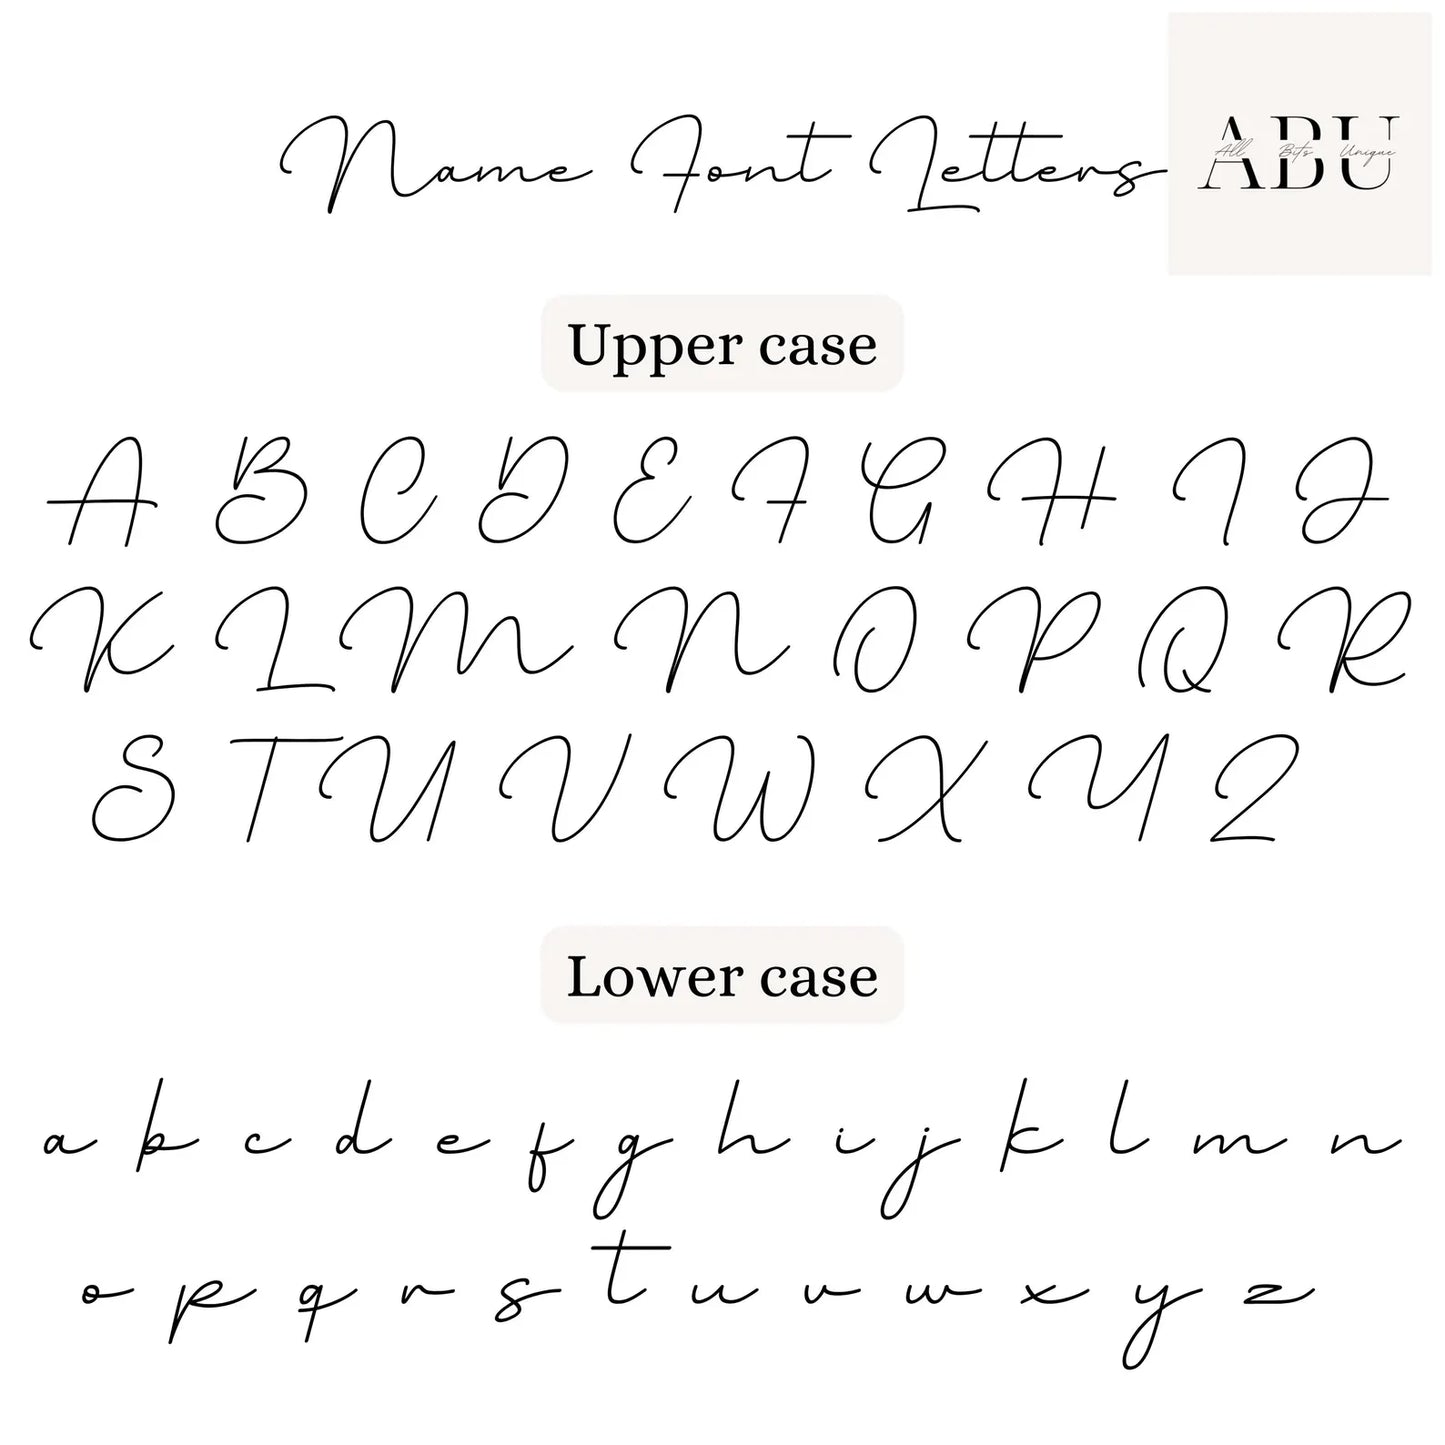 Name Font Letters
ABU
All Bits Unique
Upper case
A B C D E F G H I J
K L M N O P Q R
S T U V W X Y Z
Lower case
a b c d e f g h i j k l m n
o p q r s t u v w x y z